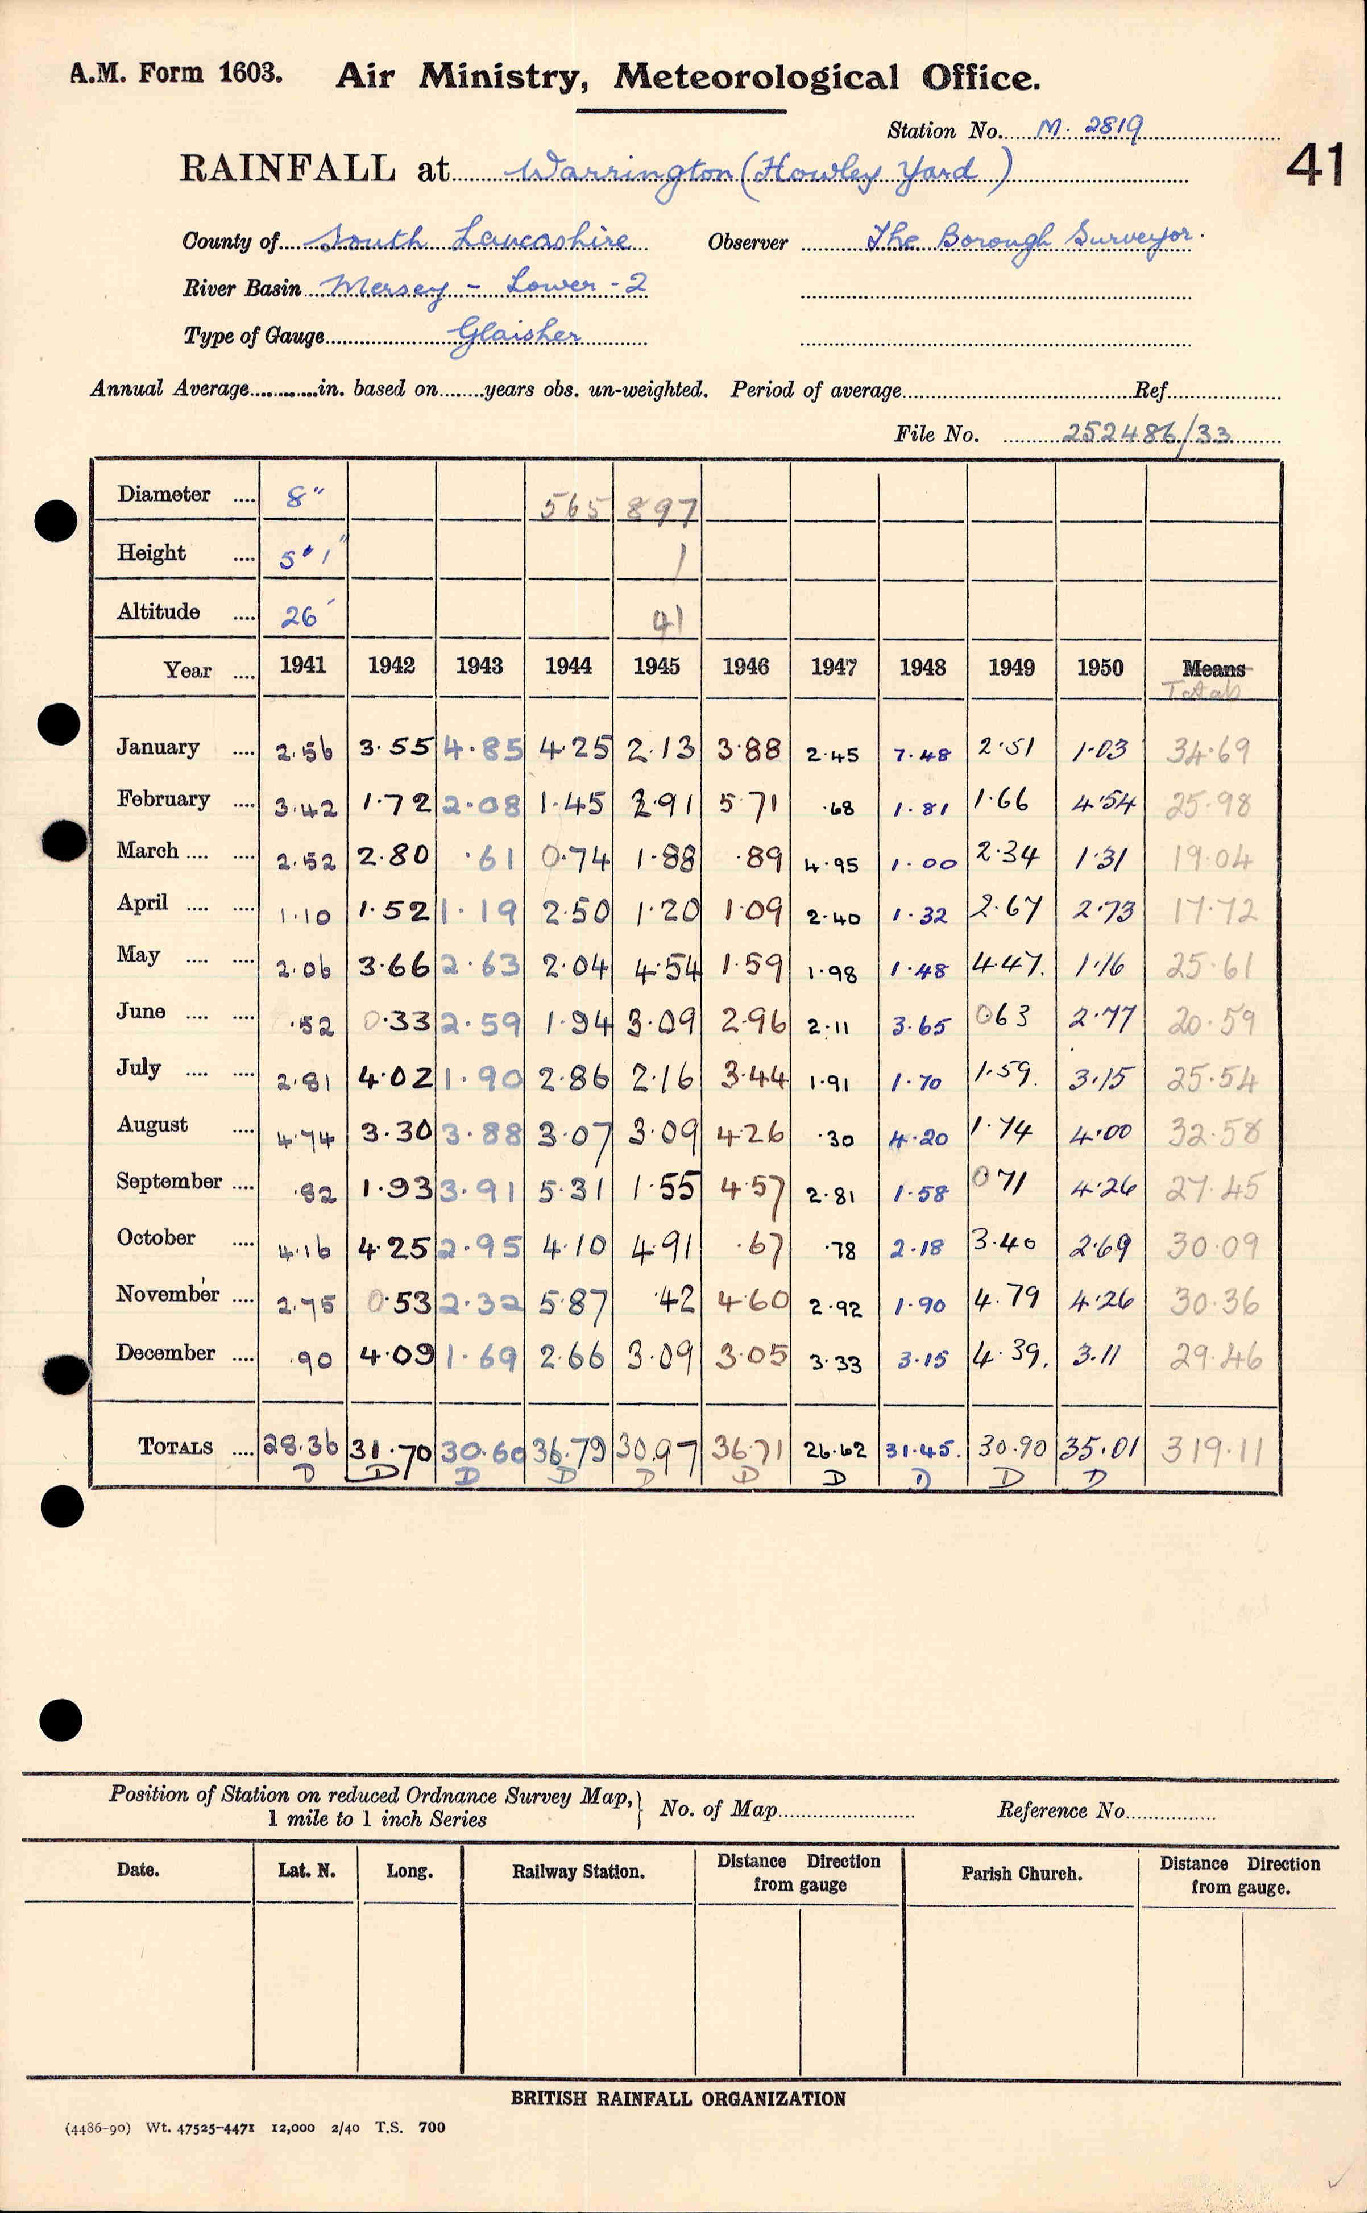 A.M. Form 1603. Air Ministry, Meteorological Office.
Station No. M. 2819
41
RAINFALL at Warrington (Howley Yard)
County of South Lancashire Observer The Borough Surveyor.
River Basin Mersey - Lower - 2
Type of Gauge Glaisher
Annual Average in. based on years obs. un-weighted. Period of average Ref.
File No. 252486/33
Diameter .... 8" 565 897
Height .... 5' 1" 1
Altitude .... 26' 41
Year .... 1941 1942 1943 1944 1945 1946 1947 1948 1949 1950 Means
Totals
January .... 2.56 3.55 4.85 4.25 2.13 3.88 2.45 7.48 2.51 1.03 34.69
February .... 3.42 1.72 2.08 1.45 2.91 5.71 .68 1.81 1.66 4.54 25.98
March .... .... 2.52 2.80 .61 0.74 1.88 .89 4.95 1.00 2.34 1.31 19.04
April .... .... 1.10 1.52 1.19 2.50 1.20 1.09 2.40 1.32 2.67 2.73 17.72
May .... .... 2.06 3.66 2.63 2.04 4.54 1.59 1.98 1.48 4.47. 1.16 25.61
June .... .... .52 0.33 2.59 1.94 3.09 2.96 2.11 3.65 0.63 2.77 20.59
July .... .... 2.81 4.02 1.90 2.86 2.16 3.44 1.91 1.70 1.59. 3.15 25.54
August .... 4.74 3.30 3.88 3.07 3.09 4.26 .30 4.20 1.74 4.00 32.58
September .... .82 1.93 3.91 5.31 1.55 4.57 2.81 1.58 0.71 4.26 27.45
October .... 4.16 4.25 2.95 4.10 4.91 .67 .78 2.18 3.40 2.69 30.09
November .... 2.75 0.53 2.32 5.87 .42 4.60 2.92 1.90 4.79 4.26 30.36
December .... .90 4.09 1.69 2.66 3.09 3.05 3.33 3.15 4.39. 3.11 29.46
TOTALS .... 28.36 31.70 30.60 36.79 30.97 36.71 26.62 31.45. 30.90 35.01 319.11
D D D D D D D D D D
Position of Station on reduced Ordnance Survey Map, } No. of Map Reference No.
1 mile to 1 inch Series
Date. Lat. N. Long. Railway Station. Distance Direction from gauge Parish Church. Distance Direction from gauge.
BRITISH RAINFALL ORGANIZATION
(4486-90) Wt. 47525-4471 12,000 2/40 T.S. 700